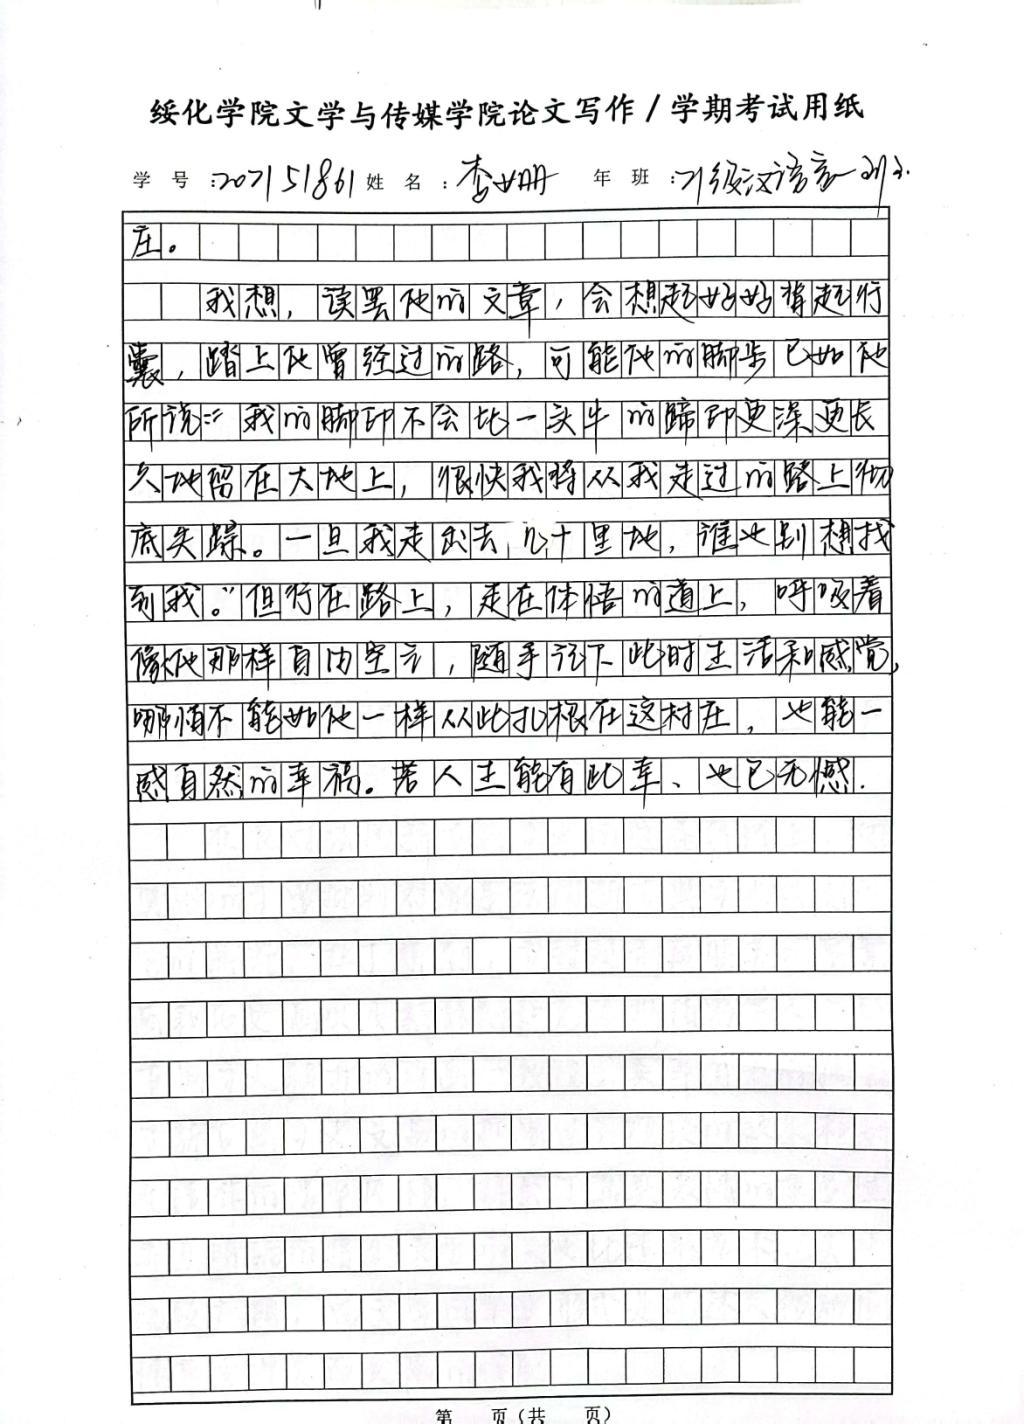 绥化学院文学与传媒学院论文写作/学期考试用纸
学 号 :207151861 姓 名 : 李册 年 班 : 21级汉语言一班
庄。
我想，读罢他的文章，会想起好好背起行
囊，踏上他曾经过的路，可能他的脚步已如他
所说：“我的脚印不会比一头牛的蹄印更深更长
久地留在大地上，很快我将从我走过的路上彻
底失踪。一旦我走出去几十里地，谁也别想找
到我。”但行在路上，走在体悟的道上，呼吸着
像他那样自由空亢，随手记下此时生活和感觉，
哪怕不能如他一样从此扎根在这村庄，也能一
感自然的幸福。若人生能有此幸、也已无憾.
第 页(共 页)